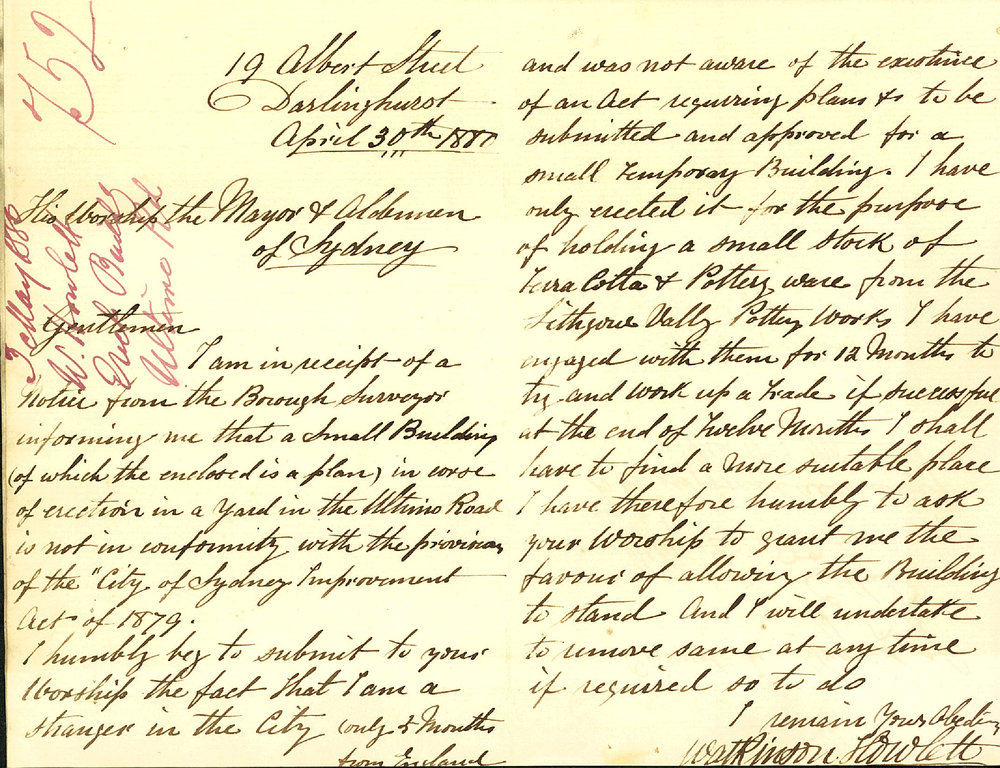 752
3 May 1880
W. Howlett
Erect Buildg
Ultimo Rd
19 Albert Street
Darlinghurst
April 30th 1880
His Worship the Mayor & Aldermen
of Sydney
Gentlemen
I am in receipt of a
Notice from the Borough Surveyor
informing me that a Small Building
(of which the enclosed is a plan) in corse
of erection in a Yard in the Ultimo Road
is not in conformity with the provisions
of the "City of Sydney Improvement
Act" of 1879.
I humbly beg to submit to your
Worship the fact that I am a
stranger in the City (only 5 Months
from England
and was not aware of the existince
of an Act requiring plans &s to be
submitted and approved for a
small Temporay Building. I have
only erected it for the purpose
of holding a small stock of
Terra Cotta & Pottery ware from the
Lithgow Vally Pottery Works I have
engaged with them for 12 Months to
try and work up a trade if successful
at the end of Twelve Months I shall
have to find a more suitable place
I have therefore humbly to ask
your Worship to grant me the
favour of allowing the Building
to stand And I will undertake
to remove same at any time
if required so to do
I remain Yours Obedien
Watkinson Howlett